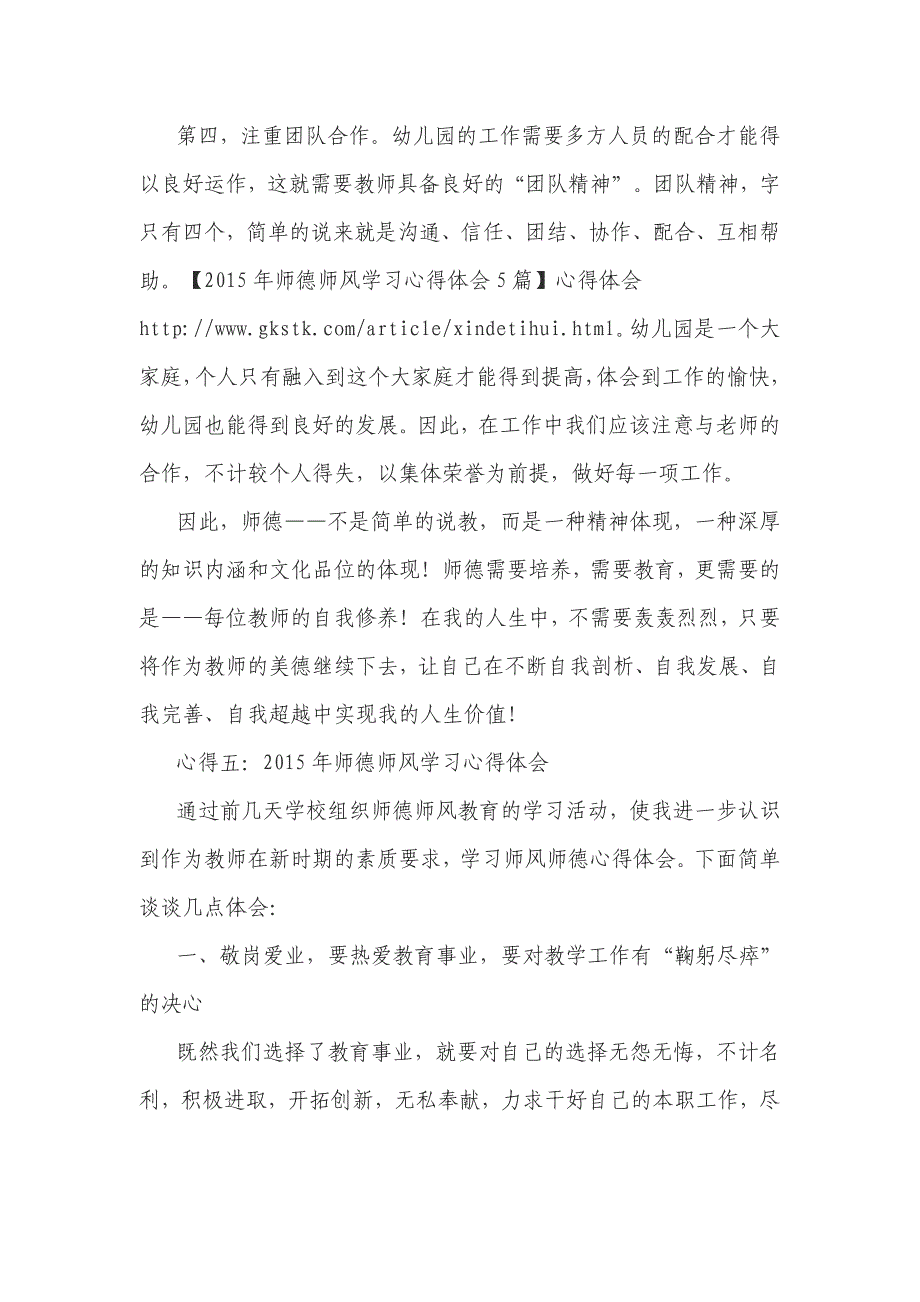 第四，注重团队合作。幼儿园的工作需要多方人员的配合才能得
以良好运作，这就需要教师具备良好的“团队精神”。团队精神，字
只有四个，简单的说来就是沟通、信任、团结、协作、配合、互相帮
助。【2015年师德师风学习心得体会5篇】心得体会
http://www.gkstk.com/article/xindetihui.html。幼儿园是一个大
家庭，个人只有融入到这个大家庭才能得到提高，体会到工作的愉快，
幼儿园也能得到良好的发展。因此，在工作中我们应该注意与老师的
合作，不计较个人得失，以集体荣誉为前提，做好每一项工作。
因此，师德——不是简单的说教，而是一种精神体现，一种深厚
的知识内涵和文化品位的体现！师德需要培养，需要教育，更需要的
是——每位教师的自我修养！在我的人生中，不需要轰轰烈烈，只要
将作为教师的美德继续下去，让自己在不断自我剖析、自我发展、自
我完善、自我超越中实现我的人生价值！
心得五：2015年师德师风学习心得体会
通过前几天学校组织师德师风教育的学习活动，使我进一步认识
到作为教师在新时期的素质要求，学习师风师德心得体会。下面简单
谈谈几点体会：
一、敬岗爱业，要热爱教育事业，要对教学工作有“鞠躬尽瘁”
的决心
既然我们选择了教育事业，就要对自己的选择无怨无悔，不计名
利，积极进取，开拓创新，无私奉献，力求干好自己的本职工作，尽